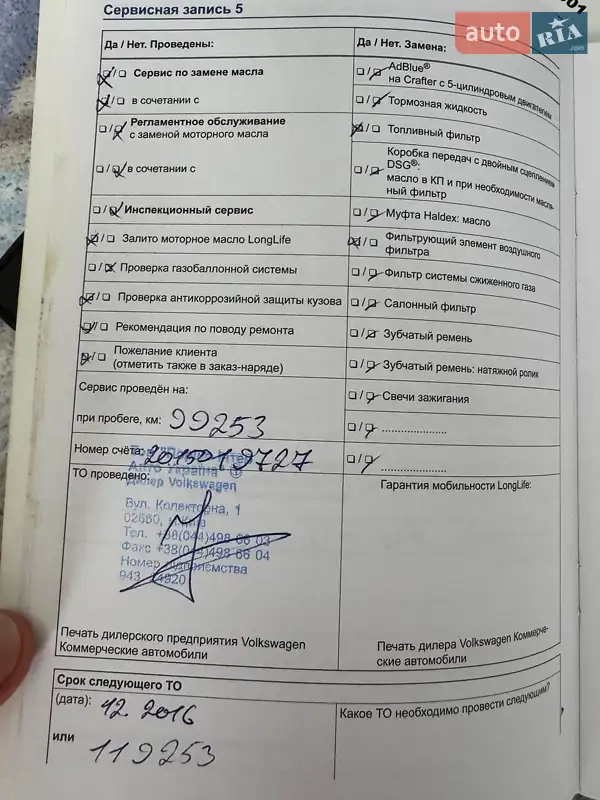 Сервисная запись 5
auto RIA .com
Да / Нет. Проведены:
☒/☐ Сервис по замене масла
☒/☐ в сочетании с
☐/☒ Регламентное обслуживание
с заменой моторного масла
☐/☒ в сочетании с
☐/☒ Инспекционный сервис
☒/☐ Залито моторное масло LongLife
☐/☒ Проверка газобаллонной системы
☒/☐ Проверка антикоррозийной защиты кузова
☒/☐ Рекомендация по поводу ремонта
☒/☐ Пожелание клиента
(отметить также в заказ-наряде)
Сервис проведён на:
при пробеге, км: 99253
Номер счёта: 2015019727
ТО проведено:
Авто Україна
Дилер Volkswagen
Вул. Колекторна, 1
02660, м.Київ
Тел. +38(044)498 66 03
Факс +38(044)498 66 04
Номер підприємства
Печать дилерского предприятия Volkswagen
Коммерческие автомобили
Да / Нет. Замена:
☐/☒ AdBlue®
на Crafter с 5-цилиндровым двигателем
☐/☒ Тормозная жидкость
☒/☐ Топливный фильтр
☐/☒ Коробка передач с двойным сцеплением
DSG®:
масло в КП и при необходимости масля-
ный фильтр
☐/☒ Муфта Haldex: масло
☒/☐ Фильтрующий элемент воздушного
фильтра
☐/☒ Фильтр системы сжиженного газа
☐/☒ Салонный фильтр
☐/☒ Зубчатый ремень
☐/☒ Зубчатый ремень: натяжной ролик
☐/☒ Свечи зажигания
☐/☒ ......................
☐/☒ ......................
Гарантия мобильности LongLife:
Печать дилера Volkswagen Коммерче-
ские автомобили
Срок следующего ТО
(дата): 12. 2016
или
119253
Какое ТО необходимо провести следующим?